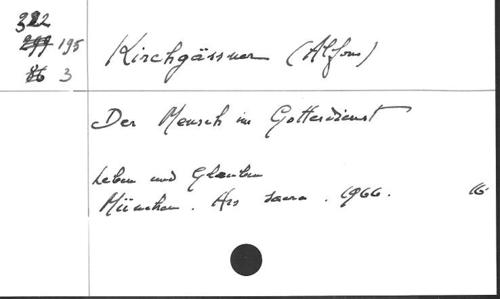 322
277 195
86 3
Kirchgässner (Alfons)
Der Mensch im Gottesdienst
Leben und Glauben
München. Ars sacra. 1966. 16.